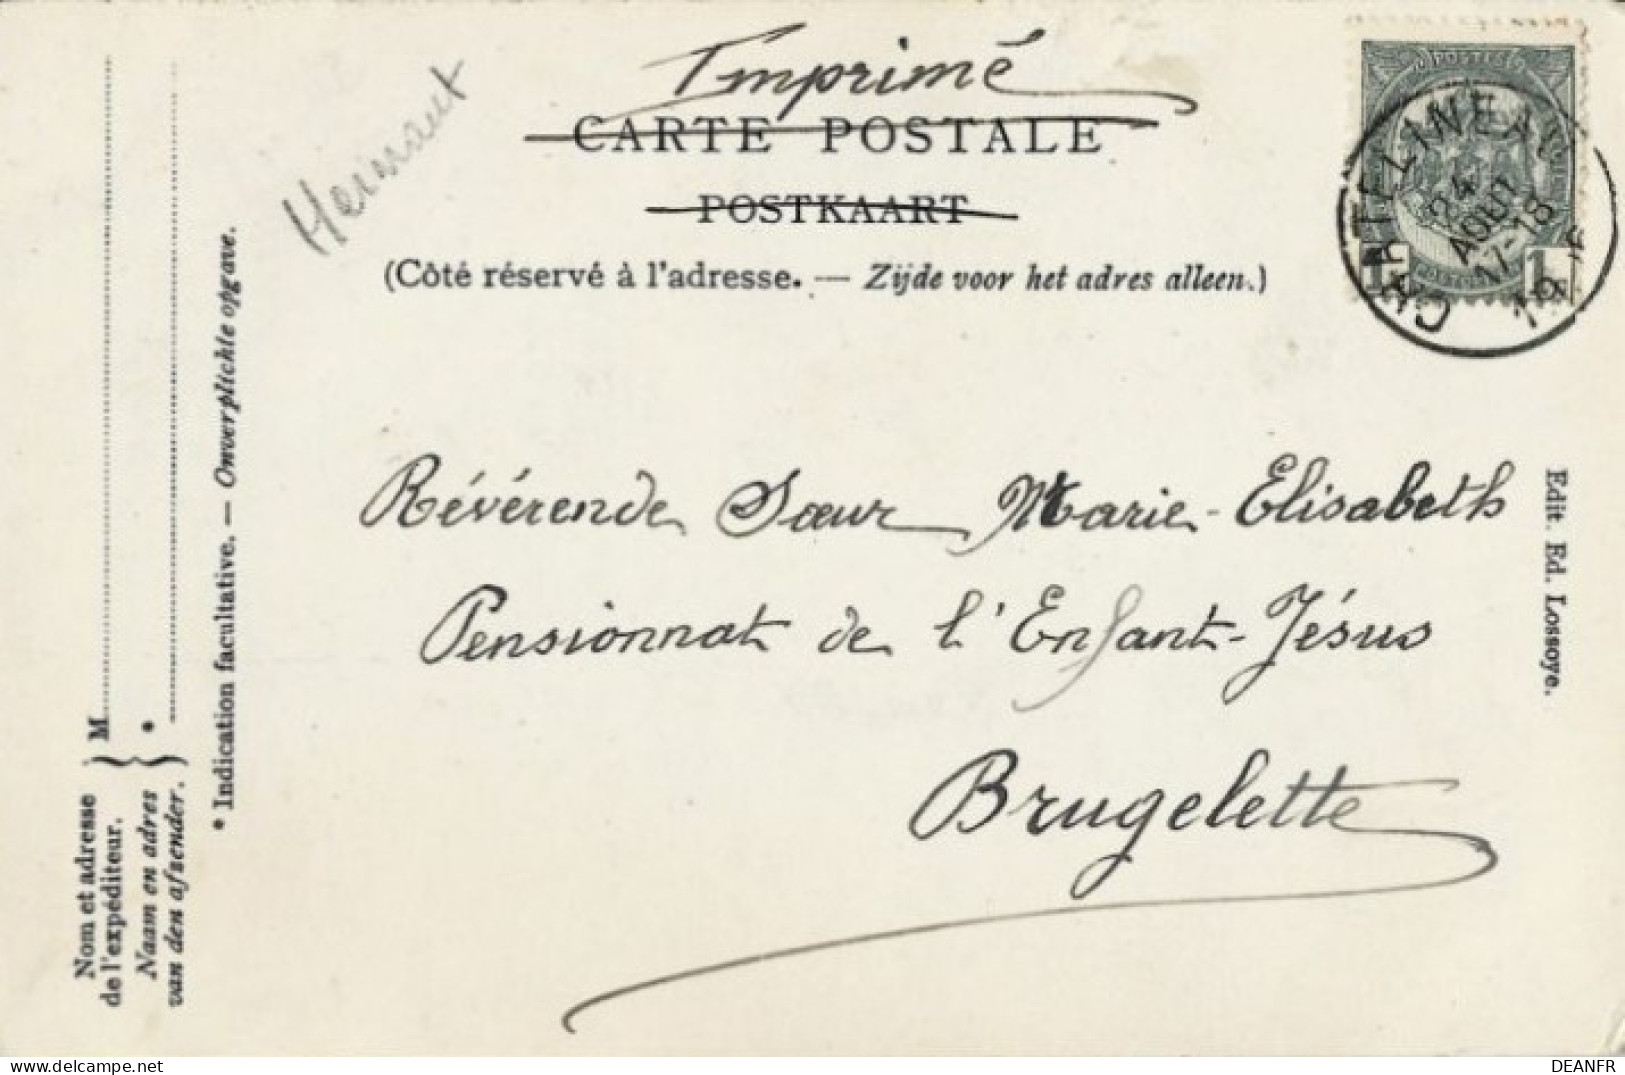 Imprimé
CARTE POSTALE
POSTKAART
(Côté réservé à l'adresse. — Zijde voor het adres alleen.)
POSTES
CHATELINEAU
24
AOUT
17-18
19
1 1
Révérende Sœur Marie-Elisabeth
Pensionnat de l'Enfant-Jésus
Brugelette
Edit. Ed. Lossoye.
* Indication facultative. — Onverplichte opgave.
Nom et adresse
de l'expéditeur.
} M
Naam en adres
van den afzender.
} *
DEANFR